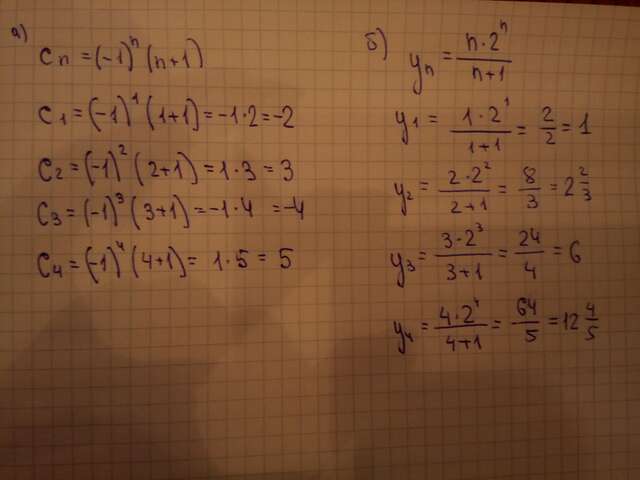 а)
Cn = (-1)^n (n+1)
C1 = (-1)^1 (1+1) = -1·2 = -2
C2 = (-1)^2 (2+1) = 1·3 = 3
C3 = (-1)^3 (3+1) = -1·4 = -4
C4 = (-1)^4 (4+1) = 1·5 = 5
б)
yn = n·2^n / n+1
y1 = 1·2^1 / 1+1 = 2/2 = 1
y2 = 2·2^2 / 2+1 = 8/3 = 2 2/3
y3 = 3·2^3 / 3+1 = 24/4 = 6
y4 = 4·2^4 / 4+1 = 64/5 = 12 4/5